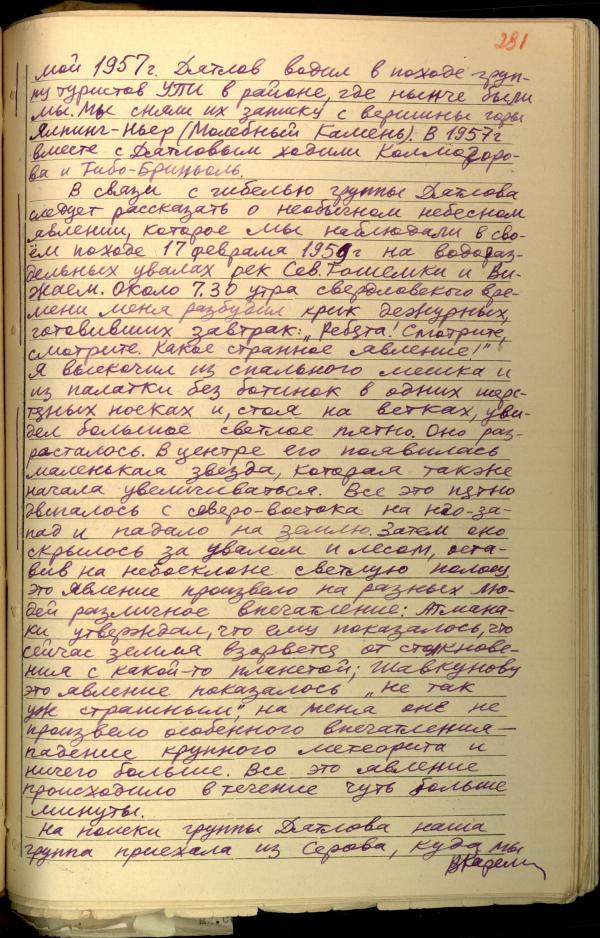 281
мой 1957г. Дятлов водил в походе груп-
пу туристов УПИ в районе, где нынче были
мы. Мы сняли их записку с вершины горы
Ялпинг-Ньер (Молебный Камень). В 1957г
вместе с Дятловым ходили Колмогоро-
ва и Тибо-Бриньоль.
В связи с гибелью группы Дятлова
следует рассказать о необычном небесном
явлении, которое мы наблюдали в сво-
ём походе 17 февраля 1959г на водораз-
дельных увалах рек Сев.Тошемки и Ви-
жаем. Около 7.30 утра свердловского вре-
мени меня разбудил крик дежурных,
готовивших завтрак: „Ребята! Смотрите,
смотрите. Какое странное явление!"
Я выскочил из спального мешка и
из палатки без ботинок в одних шерс-
тяных носках и, стоя на ветках, уви-
дел большое светлое пятно. Оно раз-
расталось. В центре его появилась
маленькая звезда, которая также
начала увеличиваться. Все это пятно
двигалось с северо-востока на юго-за-
пад и падало на землю. Затем оно
скрылось за увалом и лесом, оста-
вив на небосклоне светлую полосу.
Это явление произвело на разных лю-
дей различное впечатление: Атмана-
ки утверждал, что ему показалось, что
сейчас земля взорвется от столкнове-
ния с какой-то планетой; Шавкунову
это явление показалось „не так
уж страшным", на меня оно не
произвело особенного впечатления –
падение крупного метеорита и
ничего больше. Все это явление
происходило в течение чуть больше
минуты.
На поиски группы Дятлова наша
группа приехала из Серова, куда мы
ВКарелин